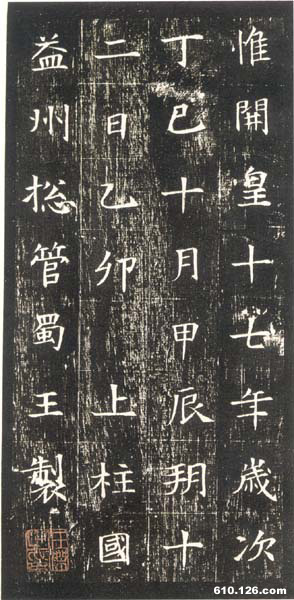 惟開皇十七年歲次
丁巳十月甲辰朔十
二日乙卯上柱國
益州捴管蜀王製
610.126.com